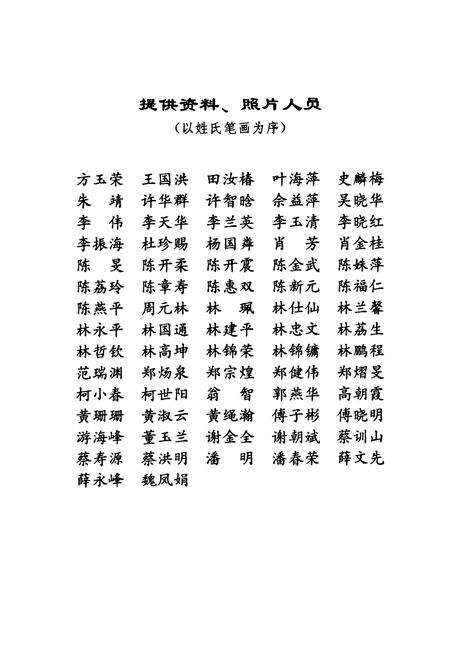 提供资料、照片人员
（以姓氏笔画为序）
方玉荣 王国洪 田汝椿 叶海萍 史麟梅
朱 靖 许华群 许智晗 余益萍 吴晓华
李 伟 李天华 李兰英 李玉清 李晓红
李振海 杜珍赐 杨国舜 肖 芳 肖金桂
陈 旻 陈开柔 陈开震 陈金武 陈姝萍
陈荔玲 陈章寿 陈惠双 陈新元 陈福仁
陈燕平 周元林 林 珮 林仕仙 林兰馨
林永平 林国通 林建平 林忠文 林荔生
林哲钦 林高坤 林锦荣 林锦镛 林鹏程
范瑞渊 郑炀泉 郑宗煌 郑健伟 郑熠旻
柯小春 柯世阳 翁 智 郭燕华 高朝霞
黄珊珊 黄淑云 黄绳瀚 傅子彬 傅晓明
游海峰 董玉兰 谢金全 谢朝斌 蔡训山
蔡寿源 蔡洪明 潘 明 潘春荣 薛文先
薛永峰 魏凤娟